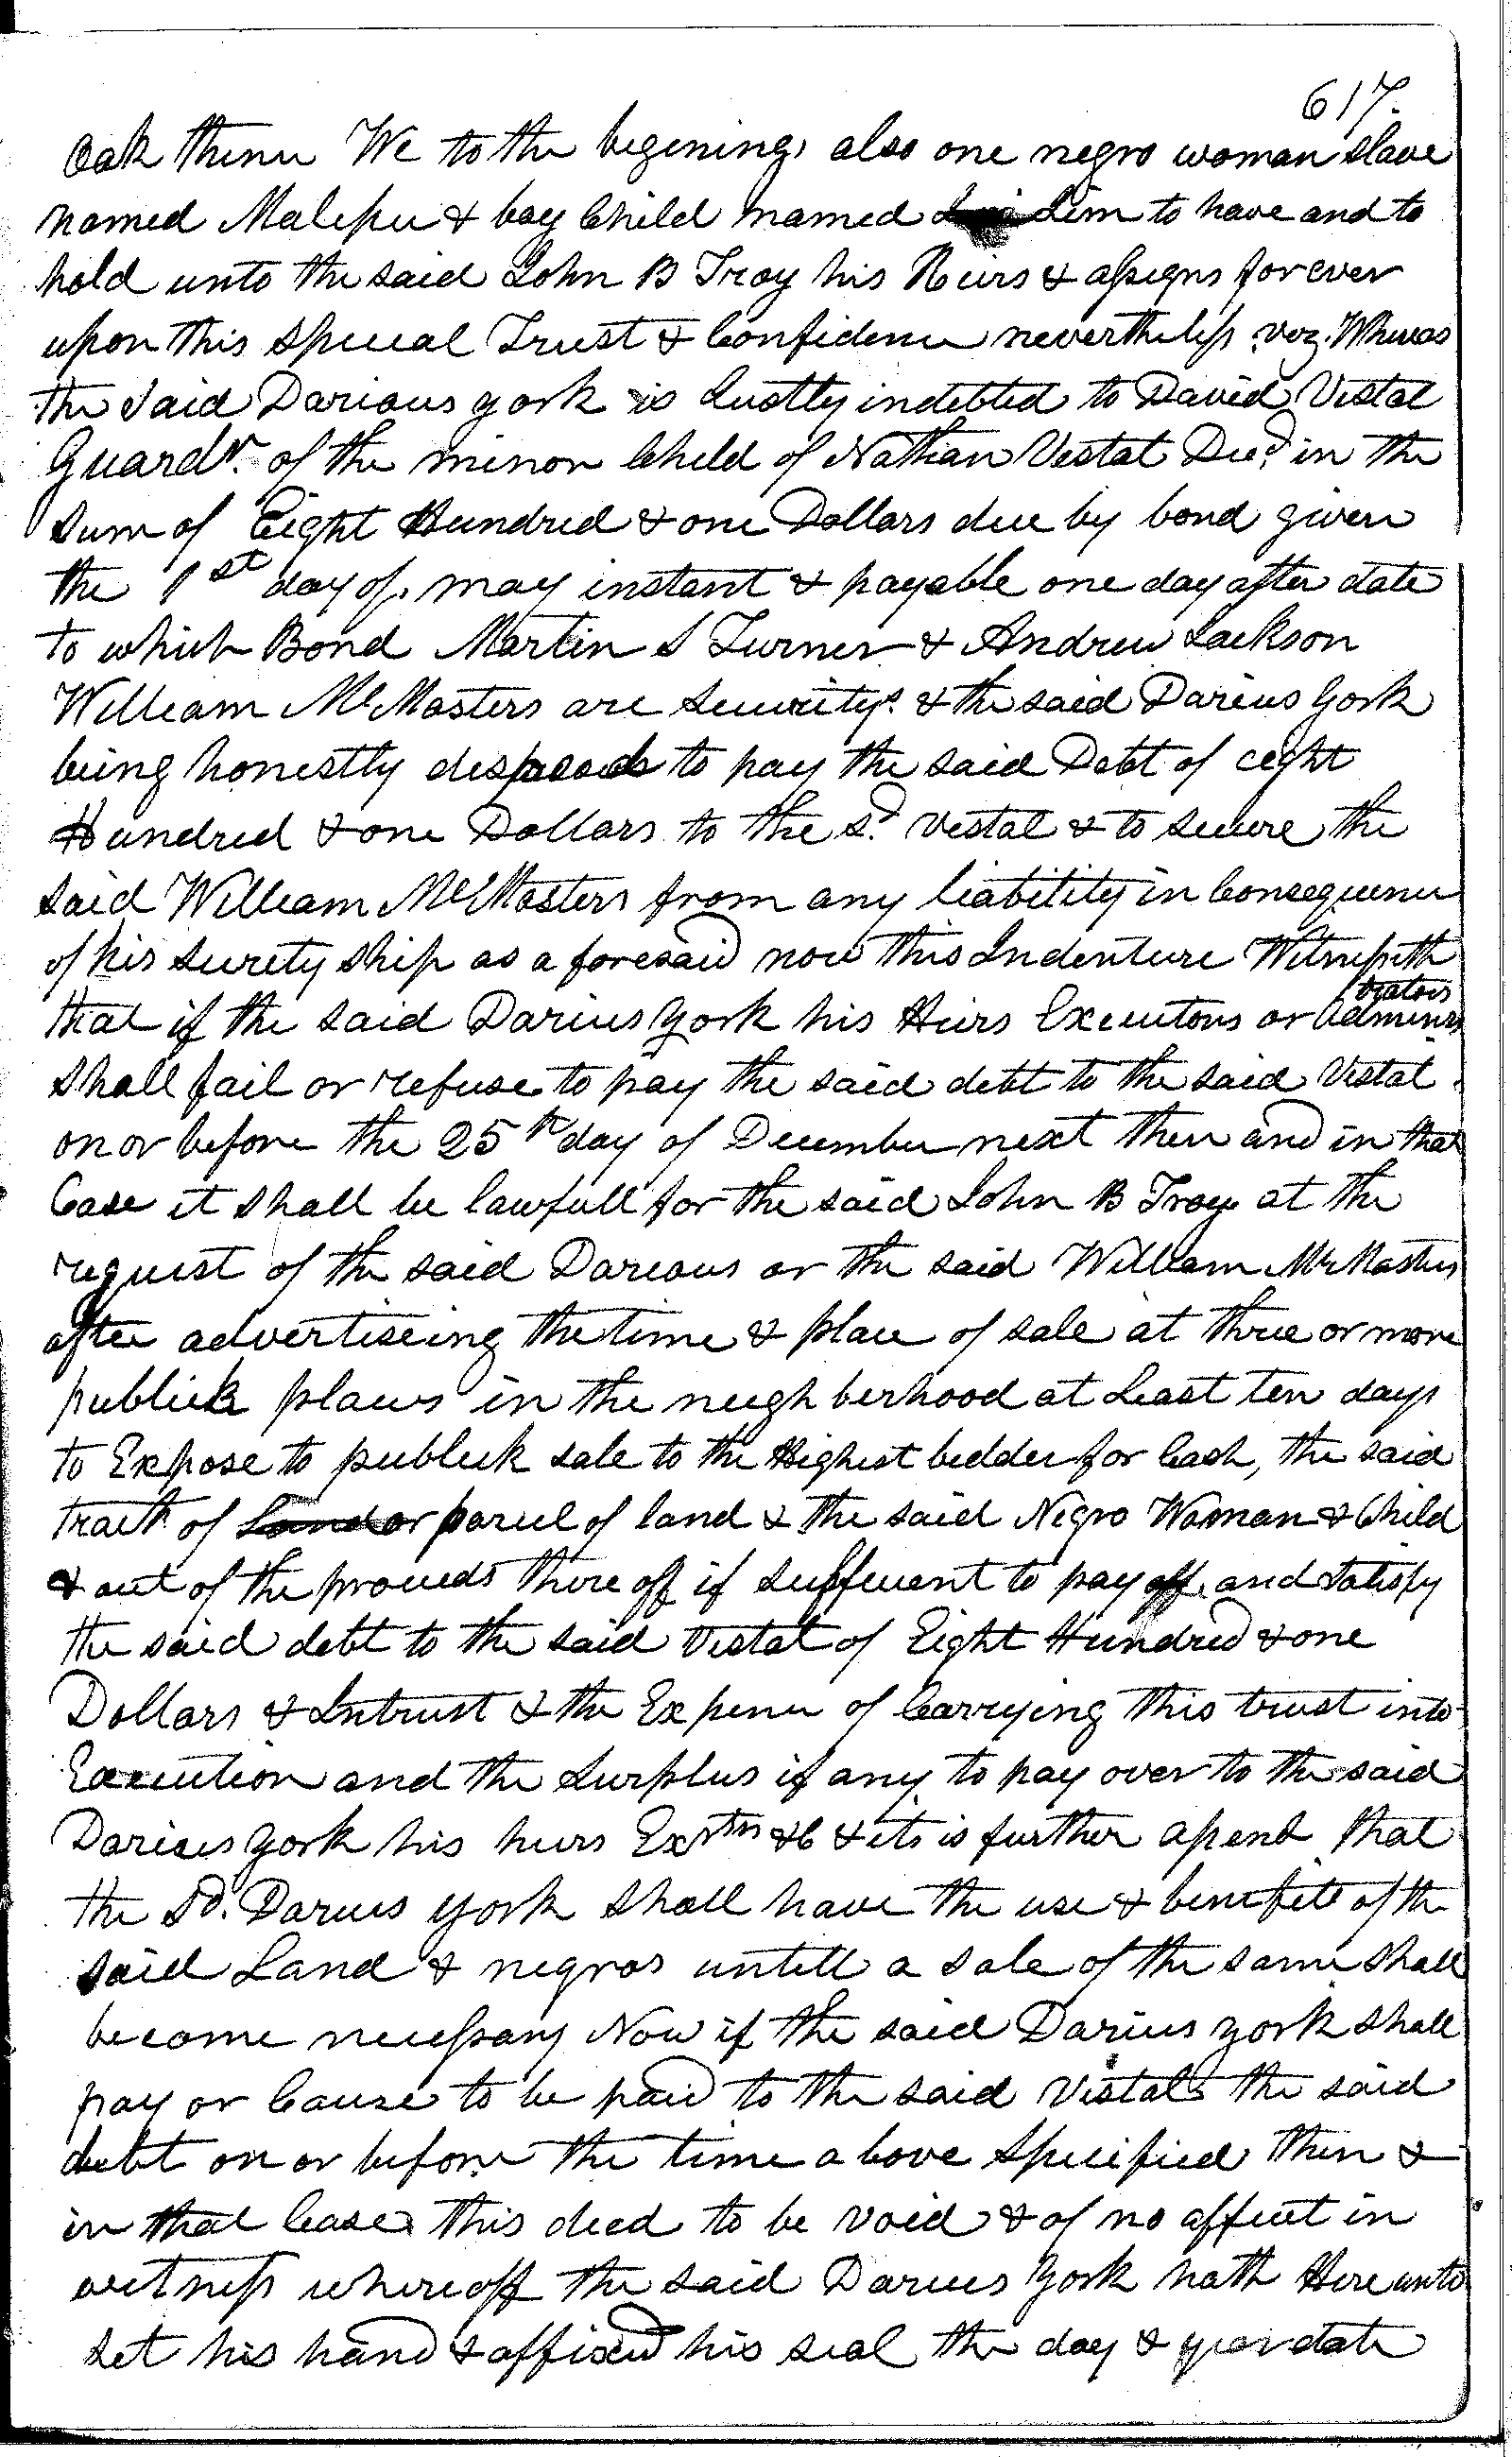 617.
Oak thence We to the begining, also one negro woman slave
named & boy Child named Jim to have and to
hold unto the said John B Troy his Heirs & assigns forever
upon this special Trust & Confidence nevertheless viz. Whereas
the Said Darious york is Justly indebted to David Vestal
Guardn. of the minor Child of Nathan Vestal Decd in the
Sum of Eight Hundred & one Dollars due by bond given
the 1st day of may instant & payable one day after date
to which Bond Martin S Turner & Andrew Jackson
William McMasters are Securitys. & the said Darius York
being honestly desposed to pay the said Debt of eight
Hundred & one Dollars to the sd. Vestal & to secure the
said William McMasters from any liability in Consequence
of his surety ship as a foresaid now this Indenture Witnesseth
that if the said Darius York his Heirs Executors or Administrators
shall fail or refuse to pay the said debt to the said Vestal
on or before the 25th day of December next then and in that
Case it shall be lawfull for the said John B Troy at the
request of the said Dareous or the said William McMasters
after advertiseing the time & place of sale at three or more
publick places in the neigh berhood at Least ten days
to Expose to publick sale to the Highest bidder for Cash, the said
tract of Land or parcel of land & the said Negro Woman & Child
& out of the proceeds there off if sufficient to pay off and satisfy
the said debt to the said Vestal of Eight Hundred & one
Dollars & Intrust & the Expence of Carrying this trust into
Execution and the Surplus if any to pay over to the said
Darius York his heirs Extrs &c & its is further that
the Sd. Darius York shall have the use & benefitt of the
said Land & negros untill a sale of the same shall
become necessary Now if the said Darius York shall
pay or Cause to be paid to the said Vistal the said
debt on or before the time above specified then &
in that Case this deed to be void & of no affect in
witness whereoff the said Darius York hath Hereunto
set his hand & affixed his seal the day & year date